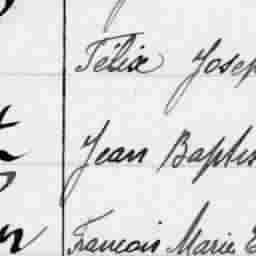 Félix Josep
Jean Baptis
François Marie E